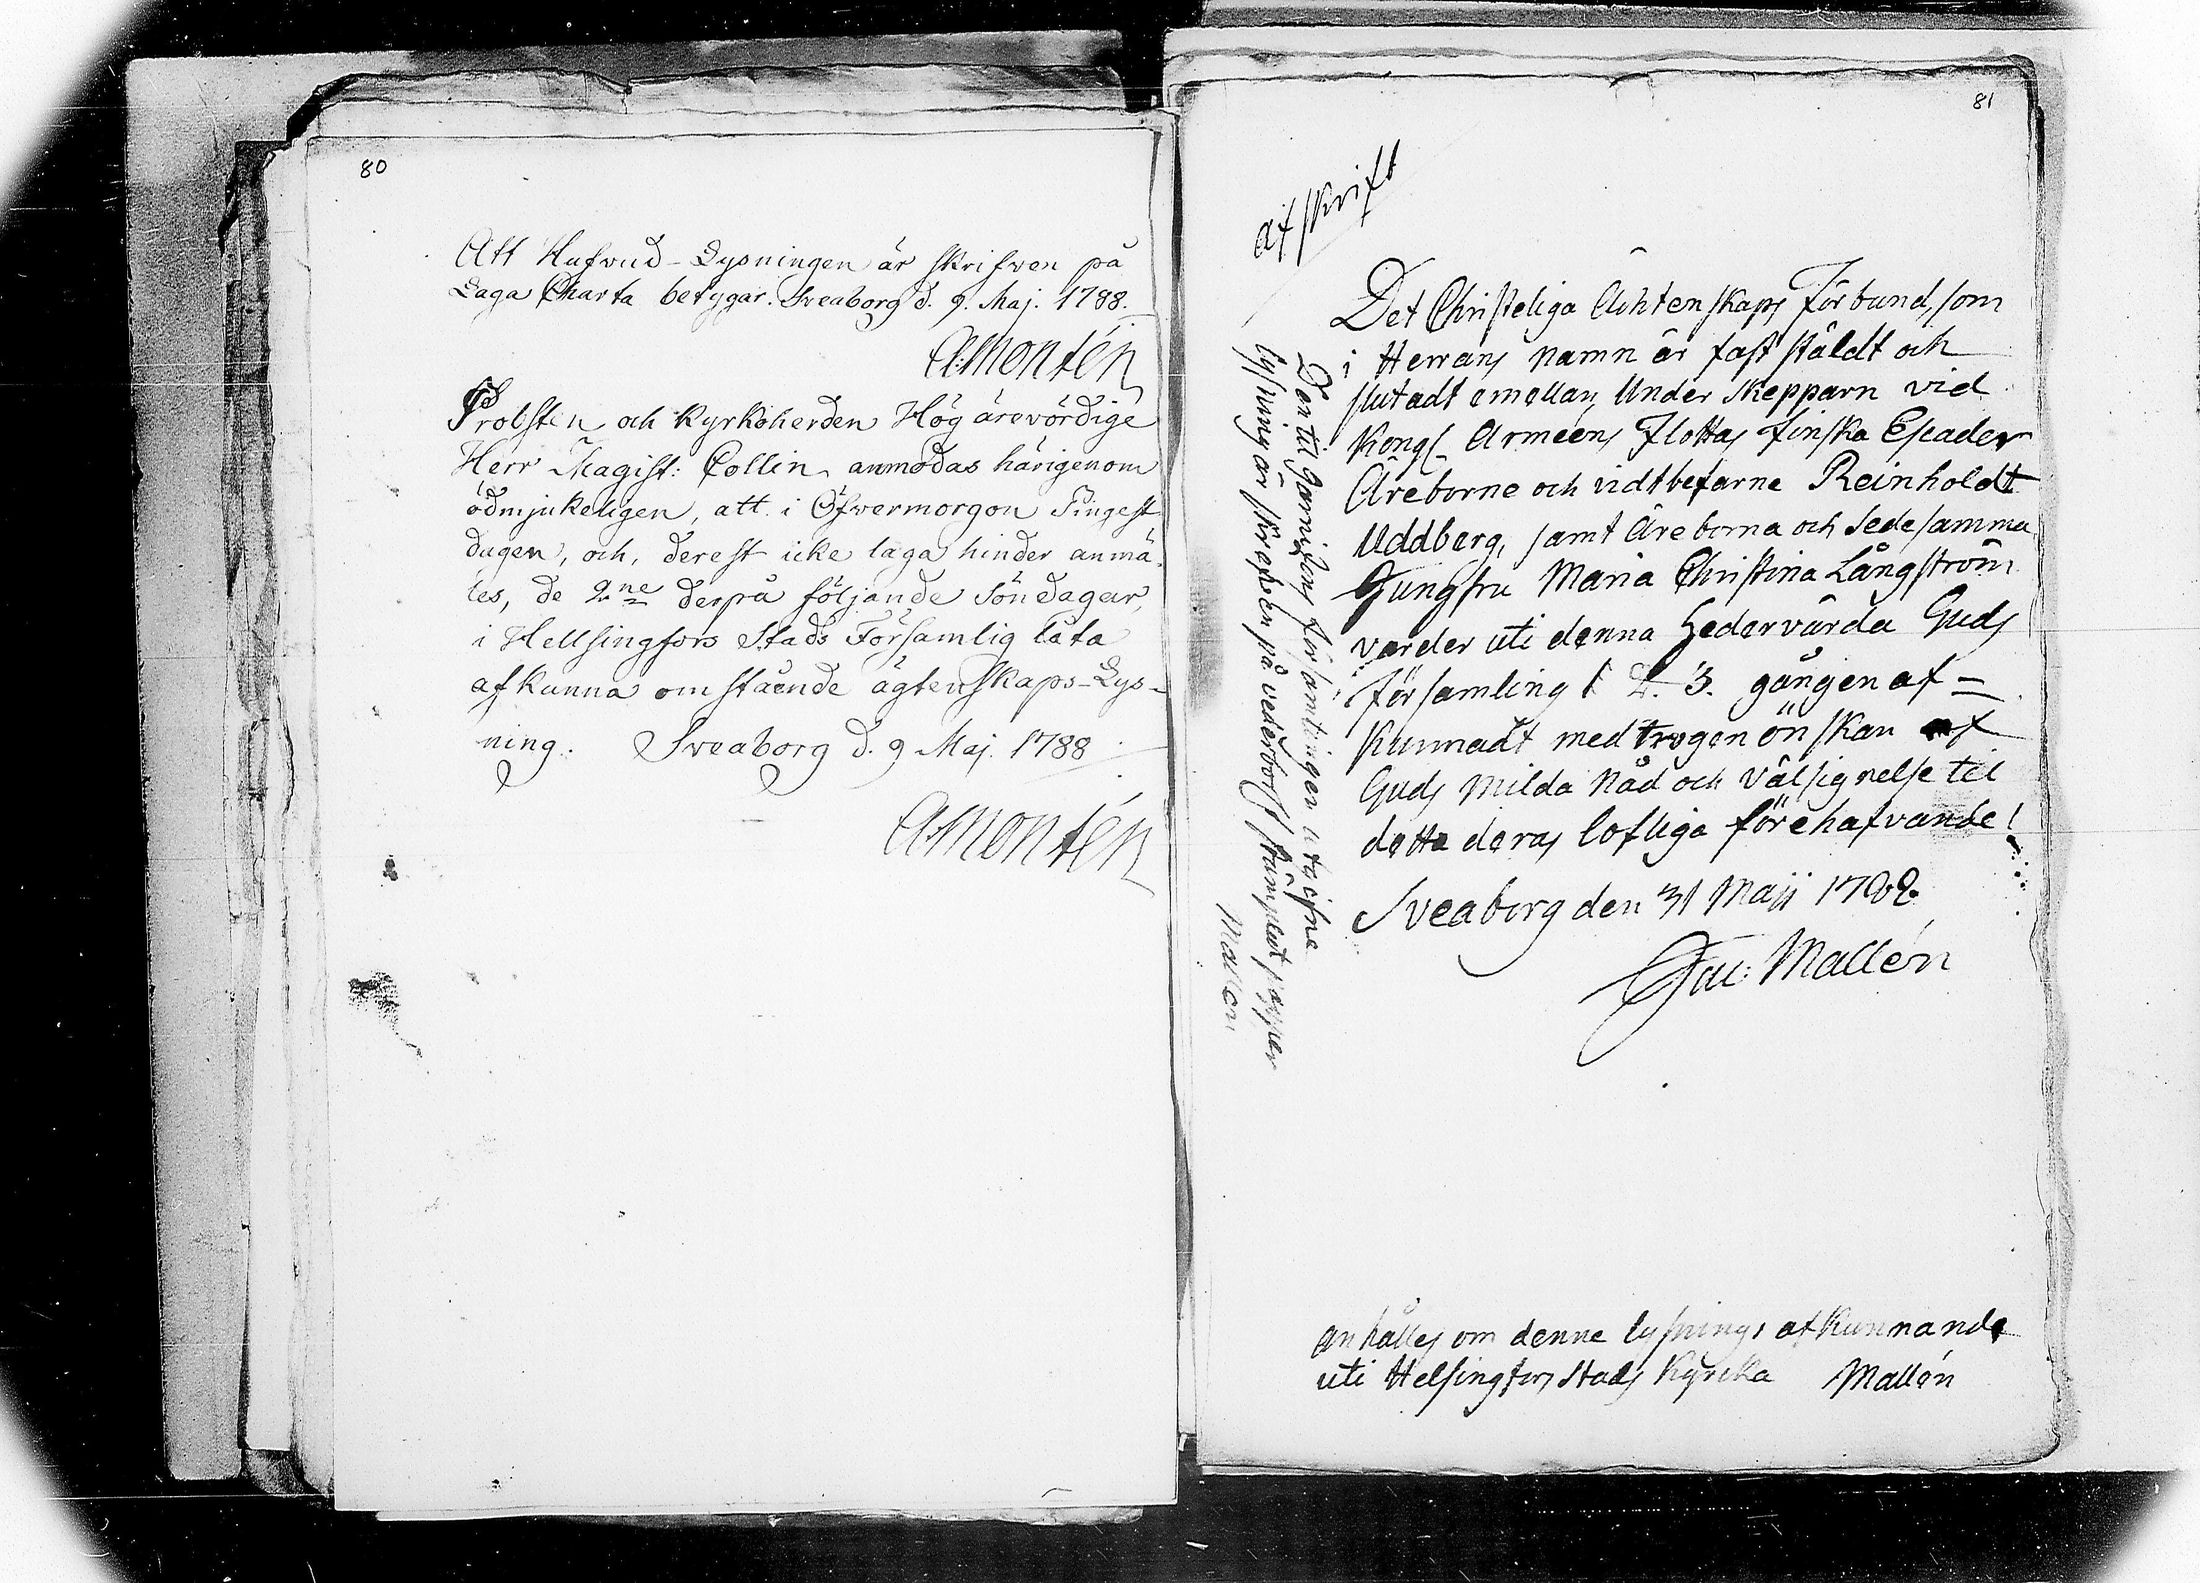 80
Att Hufwud-Lysningen är skrifwen på
Laga Charta betygar. Sveaborg d. 9. Maj. 1788.
A:Montén
Probsten och Kyrkoherden Hög ärevördige
Herr Magist: Collin anmodas härigenom
ödmjukeligen, att i Öfwermorgon Pingest
dagen, och, derest icke laga hinder anmä-
les, de 2ne derpå följande Söndagar,
i Hellsingfors Stads Församlig låta
afkunna omstående ägtenskaps-Lys-
ning. Sveaborg d. 9 Maj. 1788
A:Montén
81
Afskrift
Det Christeliga Ächtenskaps Förbund, som
i Herrans namn är fast stäldt och
slutadt emellan Under Skepparn vid
Kongl Armeens Flottas Finska Escader
Äreborne och vidtbefarne Reinholdt
Uddberg, samt Äreborna och Sedesamma
Jungfru Maria Christina Långström
varder uti denna Hedervärda Guds
församling 1 2. 3. gången af=
kunnadt med trogen önskan af
Guds Milda Nåd och Välsignelse til
detta deras lofliga förehafvande!
Sveaborg den 31 Maji 1788.
Jac: Mallén
Den til Garnizons församlingen utgifne
lysning är skrefven på vederbörl stämplat papper
Mallén
anhålles om denne lysnings afkunnande
uti Helsingfors Stads Kyrcka Mallén